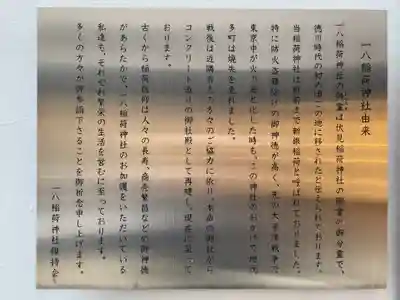 一八稲荷神社由来
一八稲荷神社の御霊は伏見稲荷神社の御霊の御分霊で、
徳川時代の初め頃この地に移されたと伝えられております。
当稲荷神社は戦前まで新銀稲荷と呼ばれておりました。
特に防火盗難除けの御神徳が高く、先の大東亜戦争で
東京中が火の海と化した時も、この神社のおかげで地元
多町は焼失を免れました。
戦後は近隣有志の方々のご協力に依り、木造の御社から
コンクリート造りの御社殿として再建し、現在に至って
おります。
古くから稲荷信仰は人々の長寿、商売繁昌などの御神徳
があらたかで、一八稲荷神社のお加護をいただいている
私達も、それぞれ繁栄の生活を営むに至っております。
多くの方々が御参詣下さることを御祈念申し上げます。
一八稲荷神社維持会